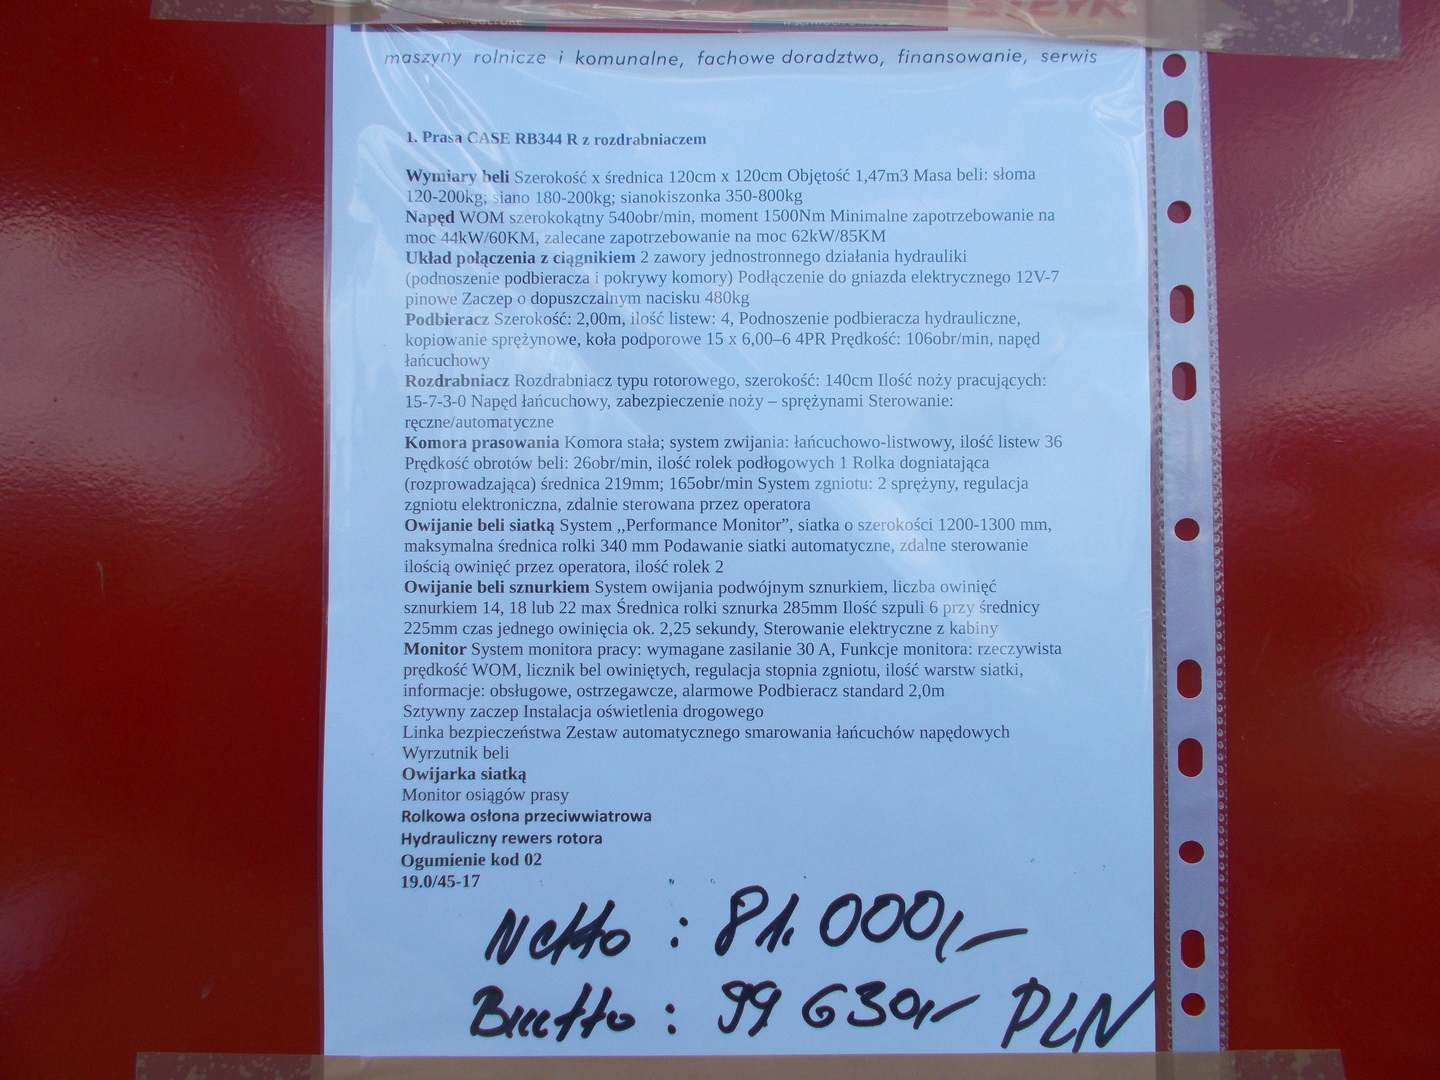 maszyny rolnicze i komunalne, fachowe doradztwo, finansowanie, serwis
1. Prasa CASE RB344 R z rozdrabniaczem
Wymiary beli Szerokość x średnica 120cm x 120cm Objętość 1,47m3 Masa beli: słoma
120-200kg; siano 180-200kg; sianokiszonka 350-800kg
Napęd WOM szerokokątny 540obr/min, moment 1500Nm Minimalne zapotrzebowanie na
moc 44kW/60KM, zalecane zapotrzebowanie na moc 62kW/85KM
Układ połączenia z ciągnikiem 2 zawory jednostronnego działania hydrauliki
(podnoszenie podbieracza i pokrywy komory) Podłączenie do gniazda elektrycznego 12V-7
pinowe Zaczep o dopuszczalnym nacisku 480kg
Podbieracz Szerokość: 2,00m, ilość listew: 4, Podnoszenie podbieracza hydrauliczne,
kopiowanie sprężynowe, koła podporowe 15 x 6,00–6 4PR Prędkość: 106obr/min, napęd
łańcuchowy
Rozdrabniacz Rozdrabniacz typu rotorowego, szerokość: 140cm Ilość noży pracujących:
15-7-3-0 Napęd łańcuchowy, zabezpieczenie noży – sprężynami Sterowanie:
ręczne/automatyczne
Komora prasowania Komora stała; system zwijania: łańcuchowo-listwowy, ilość listew 36
Prędkość obrotów beli: 26obr/min, ilość rolek podłogowych 1 Rolka dogniatająca
(rozprowadzająca) średnica 219mm; 165obr/min System zgniotu: 2 sprężyny, regulacja
zgniotu elektroniczna, zdalnie sterowana przez operatora
Owijanie beli siatką System ,,Performance Monitor”, siatka o szerokości 1200-1300 mm,
maksymalna średnica rolki 340 mm Podawanie siatki automatyczne, zdalne sterowanie
ilością owinięć przez operatora, ilość rolek 2
Owijanie beli sznurkiem System owijania podwójnym sznurkiem, liczba owinięć
sznurkiem 14, 18 lub 22 max Średnica rolki sznurka 285mm Ilość szpuli 6 przy średnicy
225mm czas jednego owinięcia ok. 2,25 sekundy, Sterowanie elektryczne z kabiny
Monitor System monitora pracy: wymagane zasilanie 30 A, Funkcje monitora: rzeczywista
prędkość WOM, licznik bel owiniętych, regulacja stopnia zgniotu, ilość warstw siatki,
informacje: obsługowe, ostrzegawcze, alarmowe Podbieracz standard 2,0m
Sztywny zaczep Instalacja oświetlenia drogowego
Linka bezpieczeństwa Zestaw automatycznego smarowania łańcuchów napędowych
Wyrzutnik beli
Owijarka siatką
Monitor osiągów prasy
Rolkowa osłona przeciwwiatrowa
Hydrauliczny rewers rotora
Ogumienie kod 02
19.0/45-17
Netto : 81.000,-
Brutto : 99 630,- PLN